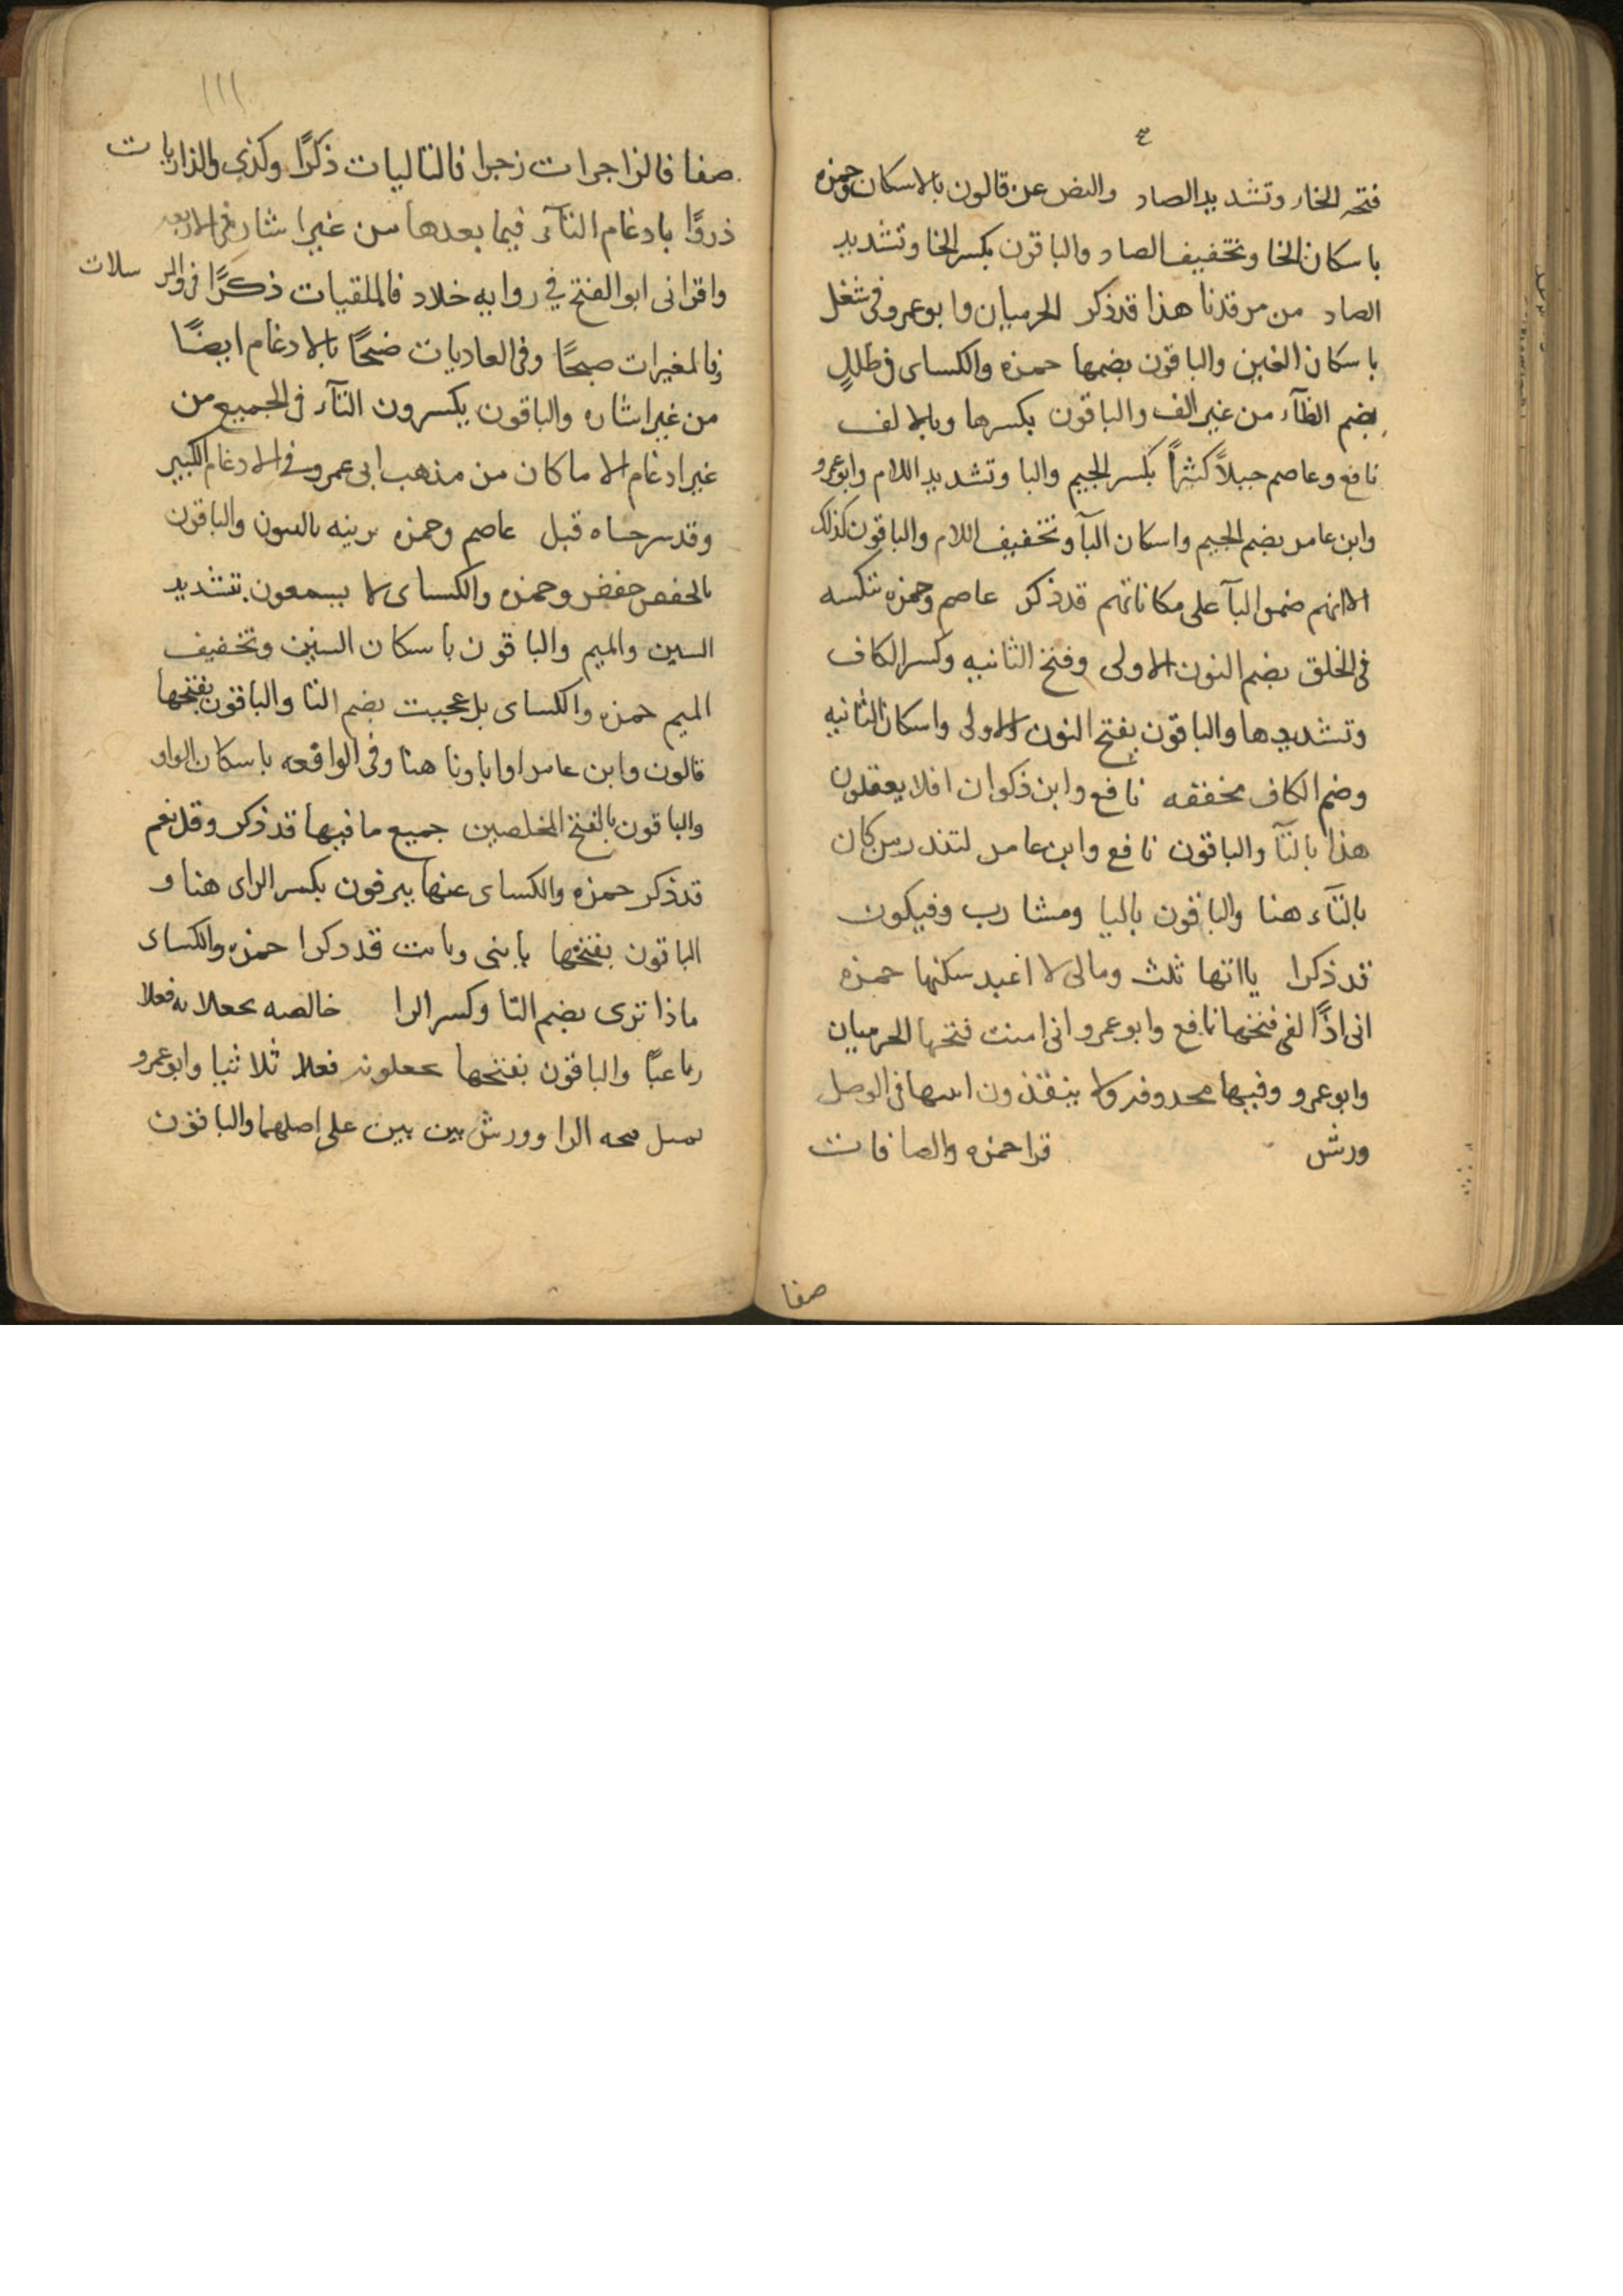 فتحه الخاء وتشديد الصاد والنص عن قالون بالاسكان وحمزه
باسكان الخا وتخفيف الصاد والباقون بكسر الخا وتشديد
الصاد من مرقدنا هذا قد ذكر الحرميان وابو عمرو في شغل
باسكان الغين والباقون بضمها حمزه والكساى في ظلل
بضم الظآء من غير الف والباقون بكسرها وبالالف
نافع وعاصم جبلاً كثيراً بكسر الجيم والبا وتشديد اللام وابو عمرو
وابن عامر بضم الجيم واسكان البآ وتخفيف اللام والباقون كذلك
الا انهم ضموا البآ على مكاناتهم قد ذكر عاصم وحمزه ننكسه
في الخلق بضم النون الاولى وفتح الثانيه وكسر الكاف
وتشديدها والباقون بفتح النون الاولى واسكان الثانيه
وضم الكاف مخففه نافع وابن ذكوان افلا يعقلون
هذا بالتآ والباقون نافع وابن عامر لتنذر من كان
بالتآء هنا والباقون باليا ومشارب وفيكون
قد ذكرا يااتها ثلث ومالى لا اعبد سكنها حمزه
انى اذًا لفى فتحها نافع وابو عمرو انى امنت فتحها الحرميان
وابو عمرو وفيها محذوفه ولا ينقذون اثبتها في الوصل
ورش قرا حمزه والصافات
صفا
١١١
صفا فالزاجرات زجرا فالتاليات ذكرًا وكذى والذاريات
ذروًا بادغام التآء فيما بعدها من غير اشاره في الاربعه
واقرانى ابو الفتح في روايه خلاد فالملقيات ذكرًا في والمرسلات
فالمغيرات صبحًا وفي العاديات ضبحًا بالادغام ايضًا
من غير اشاره والباقون يكسرون التآء في الجميع من
غير ادغام الا ما كان من مذهب ابى عمرو في الادغام الكبير
وقد شرحناه قبل عاصم وحمزه بزينه بالتنوين والباقون
بالخفض حفص وحمزه والكساى لا يسمعون بتشديد
السين والميم والباقون باسكان السين وتخفيف
الميم حمزه والكساى بل عجبت بضم التا والباقون بفتحها
قالون وابن عامر اواباونا هنا وفي الواقعه باسكان الواو
والباقون بالفتح المخلصين جميع ما فيها قد ذكر وقل نعم
قد ذكر حمزه والكساى عنها ينزفون بكسر الزاى هنا و
الباقون بفتحها يابنى ويابت قد ذكرا حمزه والكساى
ماذا ترى بضم التا وكسر الرا خالصه يجعلانه فعلا
رباعيًا والباقون بفتحها يجعلونه فعلا ثلاثيا وابو عمرو
يميل فتحه الرا وورش بين بين على اصلهما والباقون